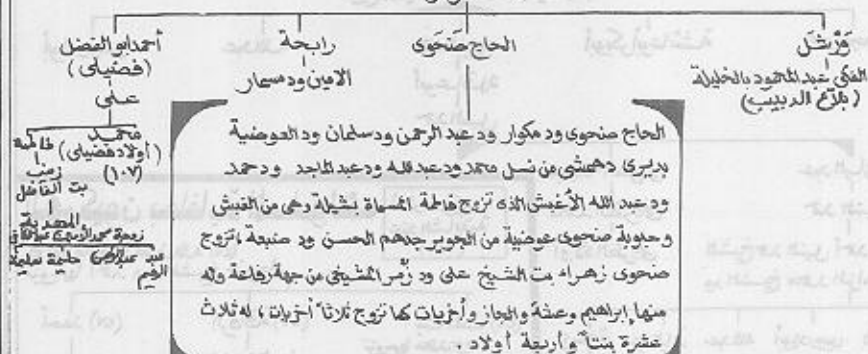 وَرْشَل
الفكي عبد المحمود بالخليلة
(بلاع الدبيب)
الحاج ضَنحَوى
رابحة
الامين ود مسمار
أحمد ابو الفضل
(فضيلى)
على
محمد
(أولاد فضيلى)
(١٠٧)
فاطمة
زينب
بت الفاضل
الحاج ضنحوى ود مكوار ود عبد الرحمن ود سلمان ود العوضية
بديرى دهمشى من نسل محمد ود عبد الله ود عبد الماجد ود حمد
ود عبد الله الأغبش الذى تزوج فاطمة المسماة بشيلة وهى من
وحلوية ضنحوى عوضية من الجوير جدهم الحسن ود ضبيعة ، تزوج
ضنحوى زهراء بت الشيخ على ود زُمر المشيخى من جهة رفاعة وله
منها إبراهيم وعشة والجاز وأخريات كما تزوج ثلاثاً أخريات ، له ثلاث
عشرة بنتاً وأربعة أولاد .